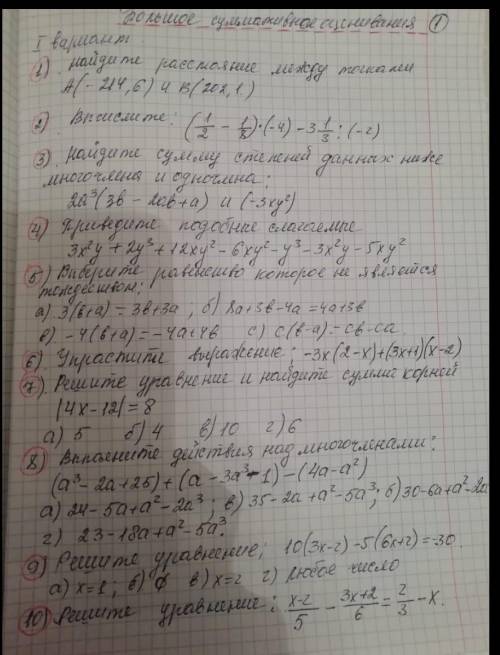 Большое суммативное оценивания ①
I вариант
1) Найдите расстояние между точками
A(-214,6) и B(202,1)
2) Вычислите: (1/2 - 1/8)·(-4) - 3 1/3 : (-2)
3) Найдите сумму степеней данных ниже
многочлена и одночлена:
2a³(3b - 2ab + a) и (-3xy²)
4) Приведите подобные слагаемые
3x²y + 2y³ + 12xy² - 6xy² - y³ - 3x²y - 5xy²
5) Выберите равенство которое не является
тождеством:
а) 3(b+a) = 3b+3a ; б) 8a+3b-4a = 4a+3b
в) -4(b+a) = -4a+4b с) c(b-a) = cb-ca.
6) Упрастите выражение: -3x(2-x)+(3x+1)(x-2)
7) Решите уравнение и найдите сумму корней
|4x-12| = 8
а) 5 б) 4 в) 10 г) 6
8) Выполните действия над многочленами:
(a³-2a+25)+(a-3a³-1)-(4a-a²)
а) 24-5a+a²-2a³ ; в) 35-2a+a²-5a³ ; б) 30-6a+a²-2a
г) 23-18a+a²-5a³.
9) Решите уравнение; 10(3x-2)-5(6x+2)=-30.
а) x=1; б) ∅ в) x=2 г) любое число
10) Решите уравнение: (x-2)/5 - (3x+2)/6 = 2/3 - x.